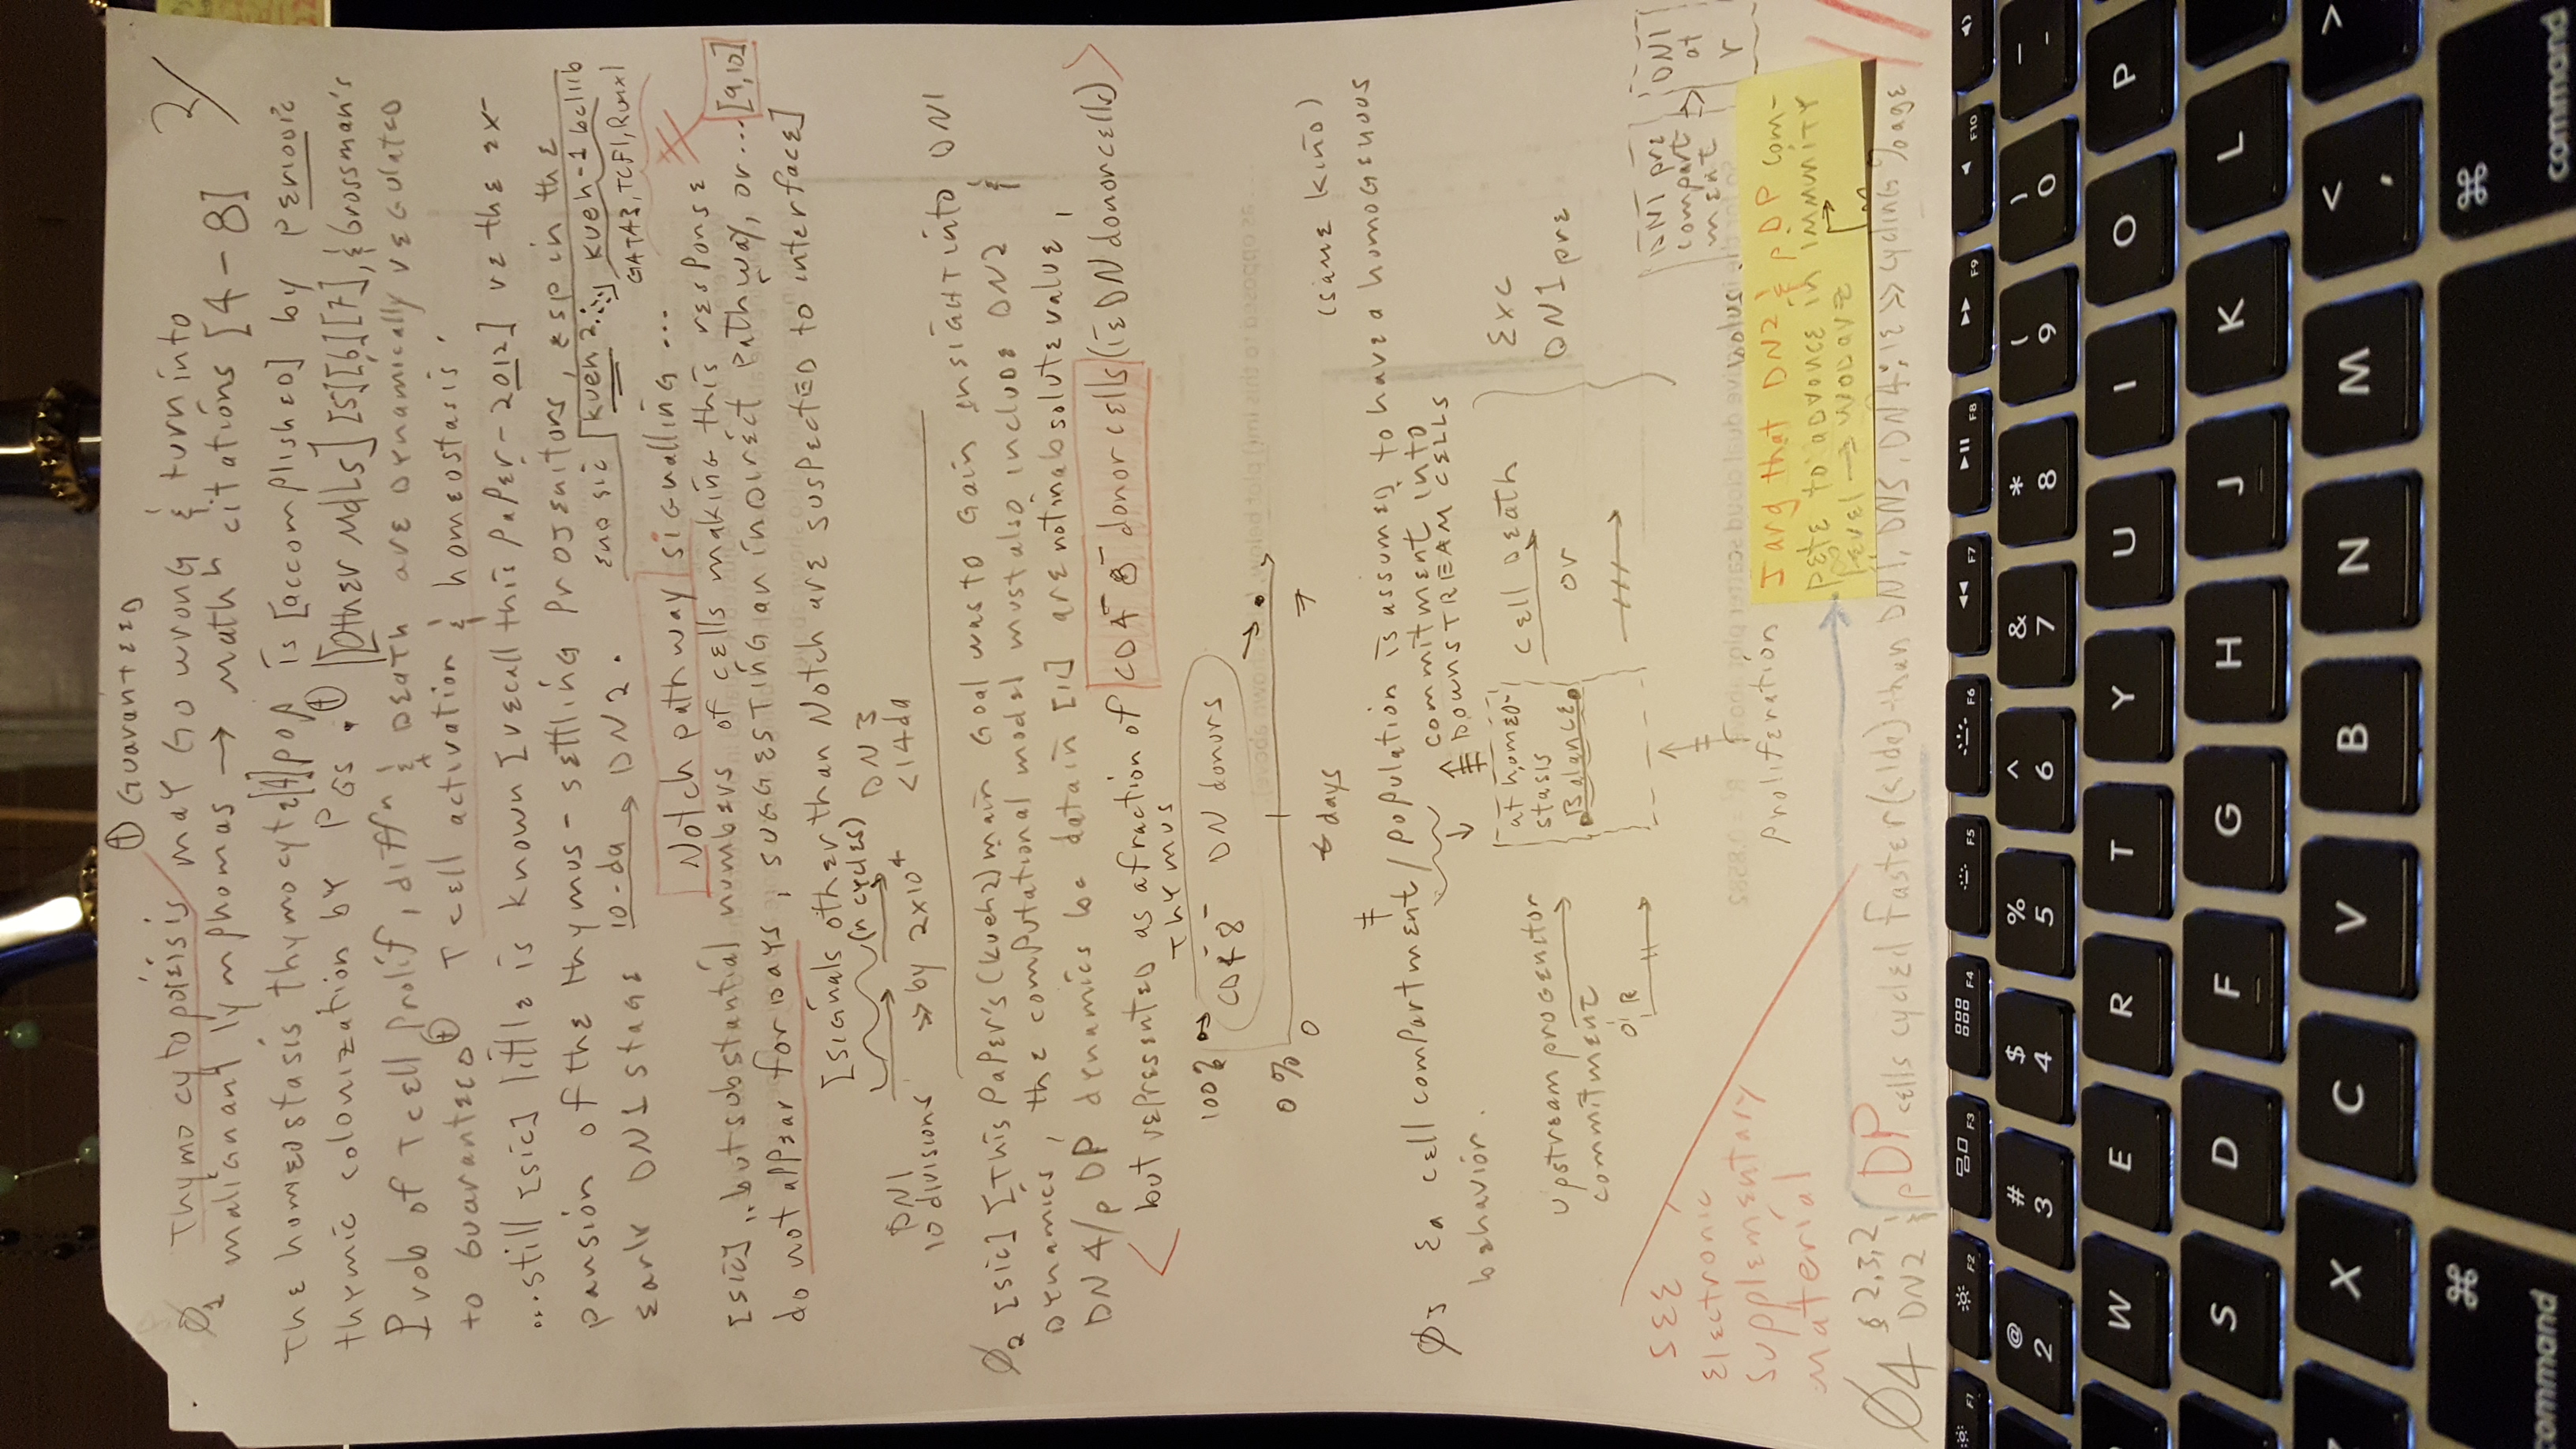 ⊕ Guaranteed
2/
Ø1 Thymocytopoieisis may Go wrong & turn into
malignant lymphomas → Math^h citations [4-8]
The homeostasis thymocyte[4] pop is [accomplished] by periodic
thymic colonization by PGs. ⊕ [Other Mdls] [5][6][7], & Grossman's
Prob of T cell Prolif, diff^n & Death are Dynamically regulated
to Guaranteed ⊕ T cell activation & homeostasis.
...still [sic] little is known [recall this Paper-2012] re the ex-
pansion of the thymus-settling Progenitors, esp in the
early DN1 stage 10-da → DN2. end sic [kueh 2 ... kueh-1 bcl11b
GATA3, TCF1, Runx1
Notch pathway signalling ...
[sic] .. but substantial numbers of cells making this response
do not appear for Days, suggesting an indirect Pathway, or ... [9,10]
[Signals other than Notch are suspected to interface]
(n cycles) DN3
DN1
10 divisions ≫ by 2x10⁴ <14da
Ø2 [sic] [This Paper's (kueh2) main Goal was to Gain insight into DN1
Dynamics, the computational model must also include DN2 &
DN4/pDP dynamics bc data in [11] are not in absolute value,
< but represented as a fraction of CD4⁻8⁻ donor cells (ie DN donor cells) >
Thymus
100%
CD4⁻8⁻ DN donors
0%
0 7
t days
(same kind)
Ø3 Ea cell compartment/population is assumed to have a homogenuous
behavior.
commitment into
Downstream cells
at homeo-
stasis
Balance
Upstream progenitor
commitment
Cell Death
or
Exc
DN1 pre
Proliferation
DN1 pre
compart
ment
DN1
at
r
bolus
See
Electronic
Supplementary
Material
I arg that DN2 & pDP com-
pete to advance in immunity
level → Wodarz
Ø4 § 2.3.2
DN2 & pDP cells cycled faster than DN1, DN3, DN4; ie ≫ cycling %age
as opposed to this lm() plot below, (also shown above)
F1 F2 F3 F4 F5 F6 F7 F8 F9 F10
@ # $ % ^ & * ( ) _
2 3 4 5 6 7 8 9 0 -
W E R T Y U I O P
S D F G H J K L
X C V B N M < >
,
⌘ ⌘
command command